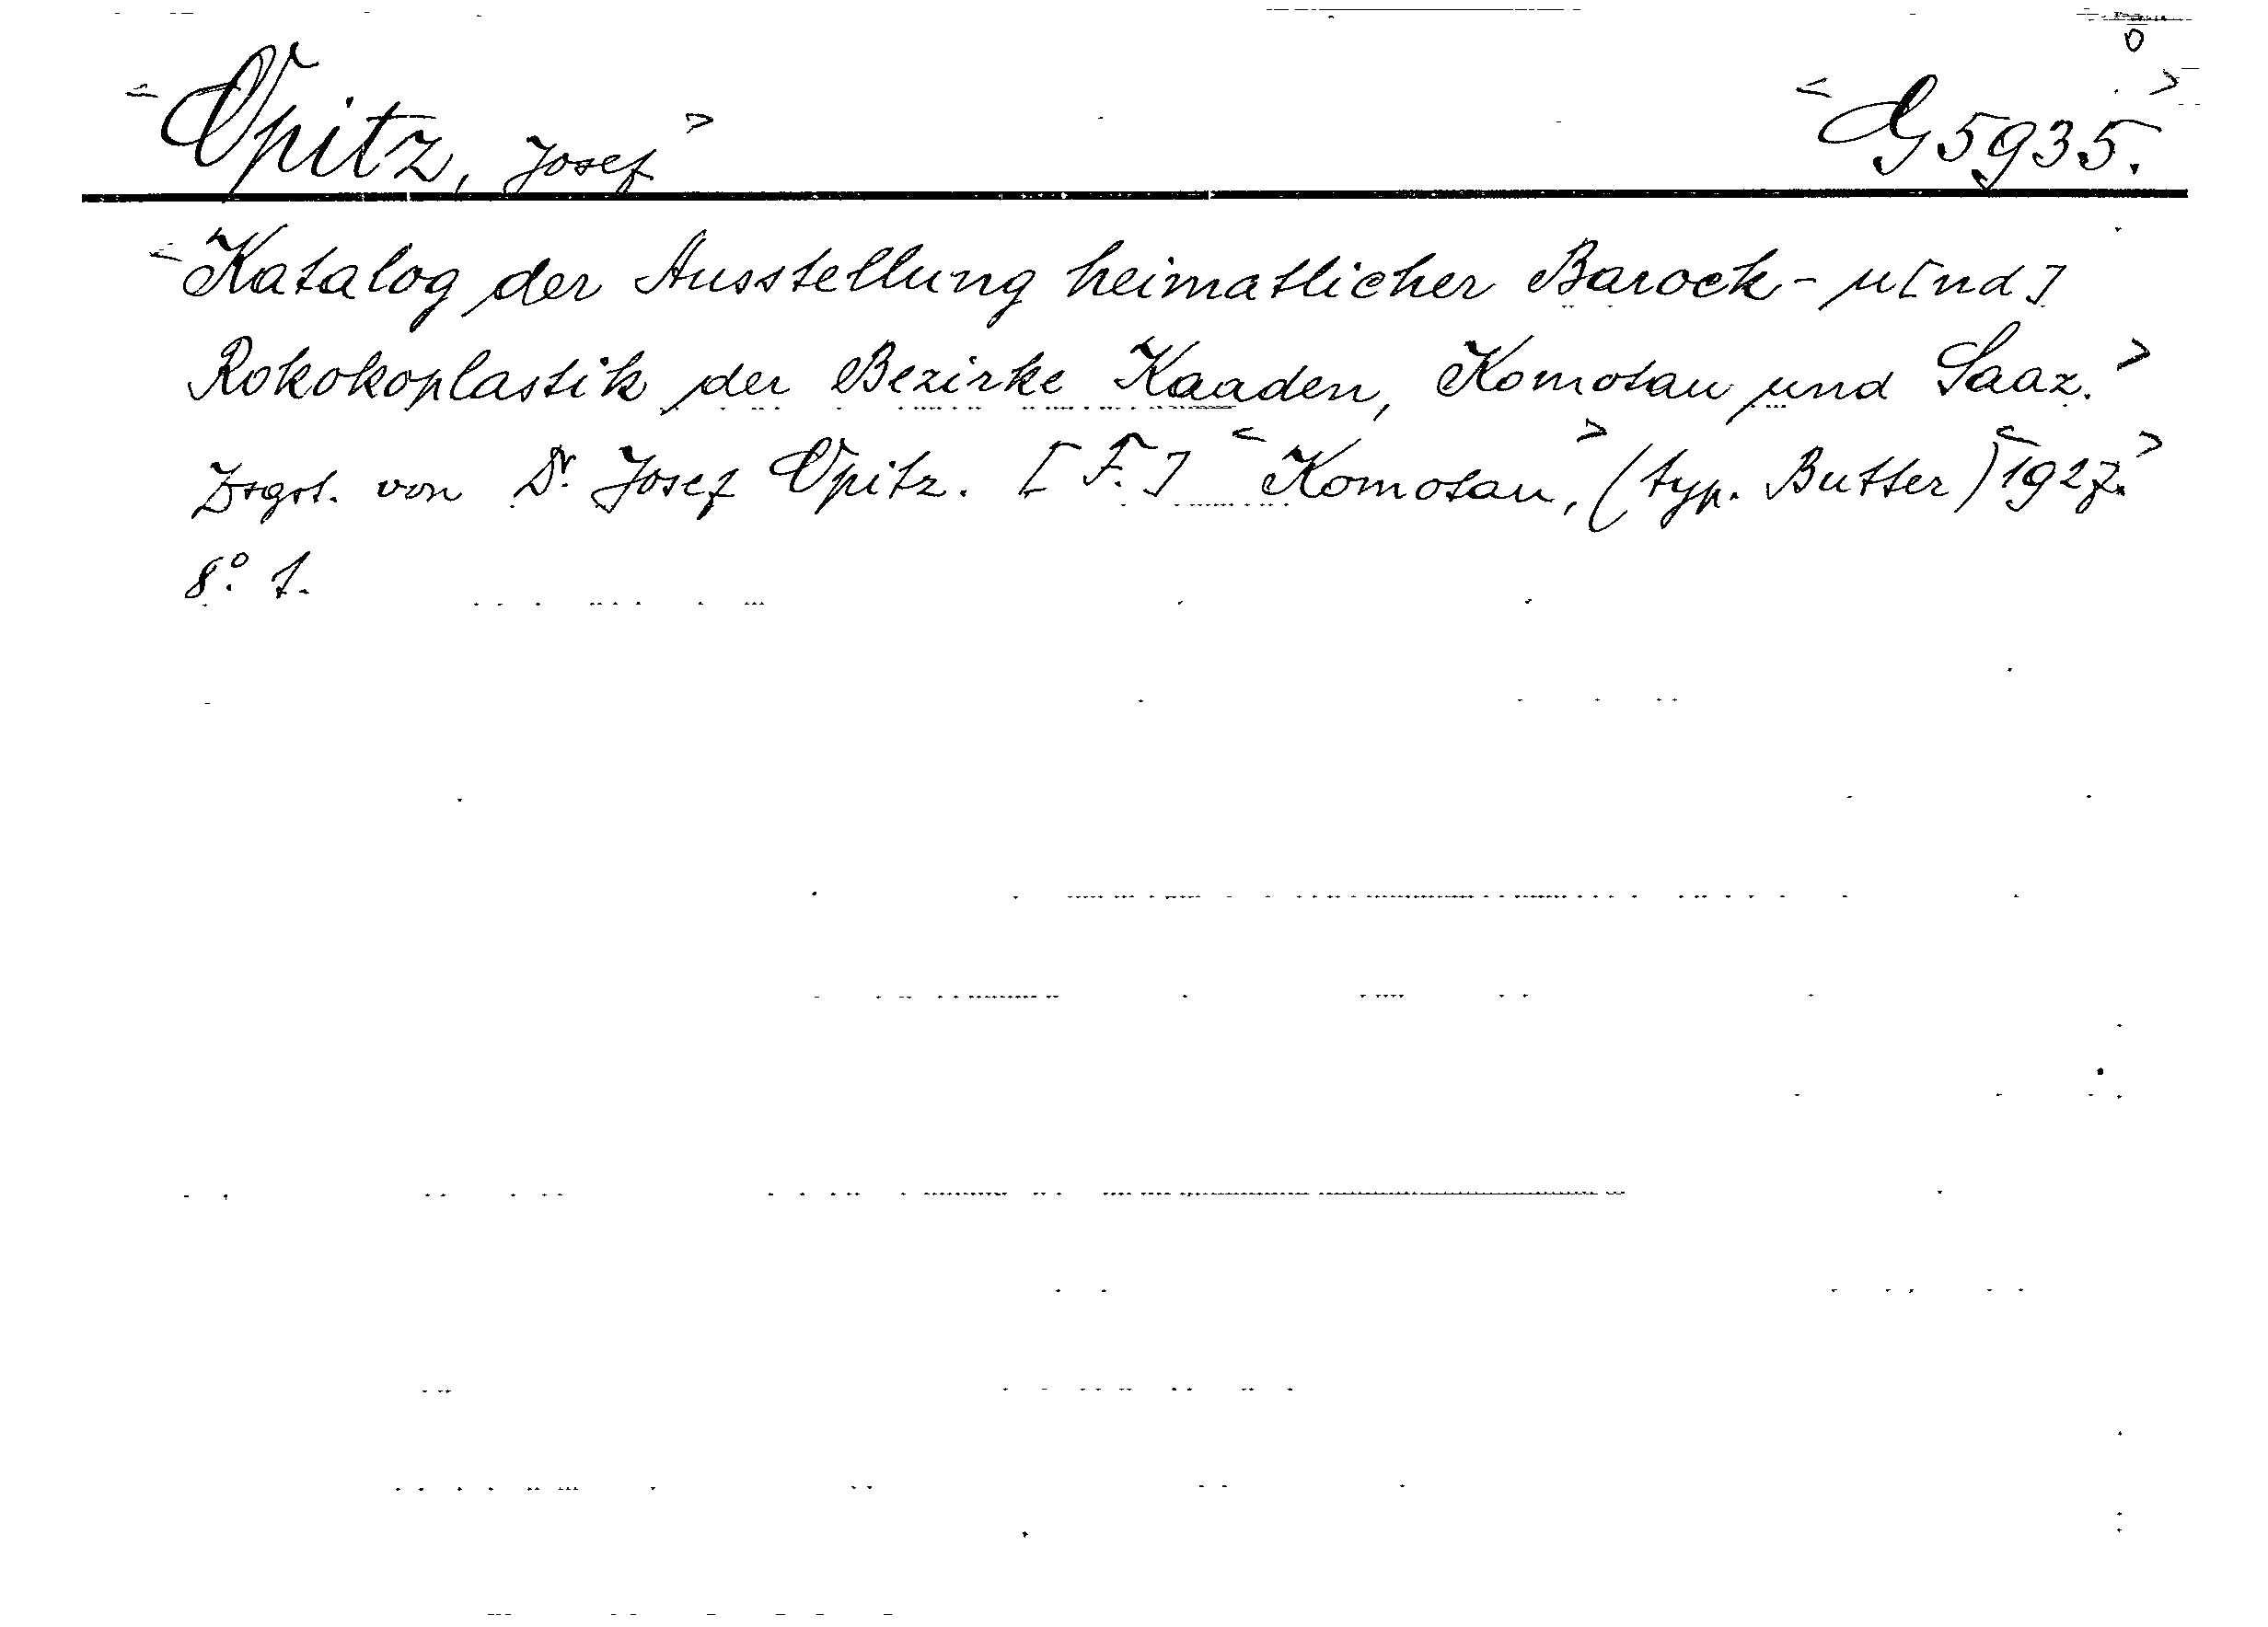 <Opitz, Josef> <G 5935.>
<Katalog der Ausstellung heimatlicher Barock- u[nd]
Rokokoplastik der Bezirke Kaaden, Komotau und Saaz.>
Zsgst. von Dr. Josef Opitz. [F.] <Komotau,> (typ. Butter) <1927.>
8°. 1.